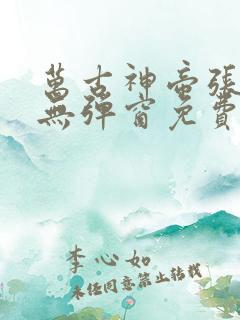 萬古神帝張
無彈窗免費
李心如
未經同意禁止轉載